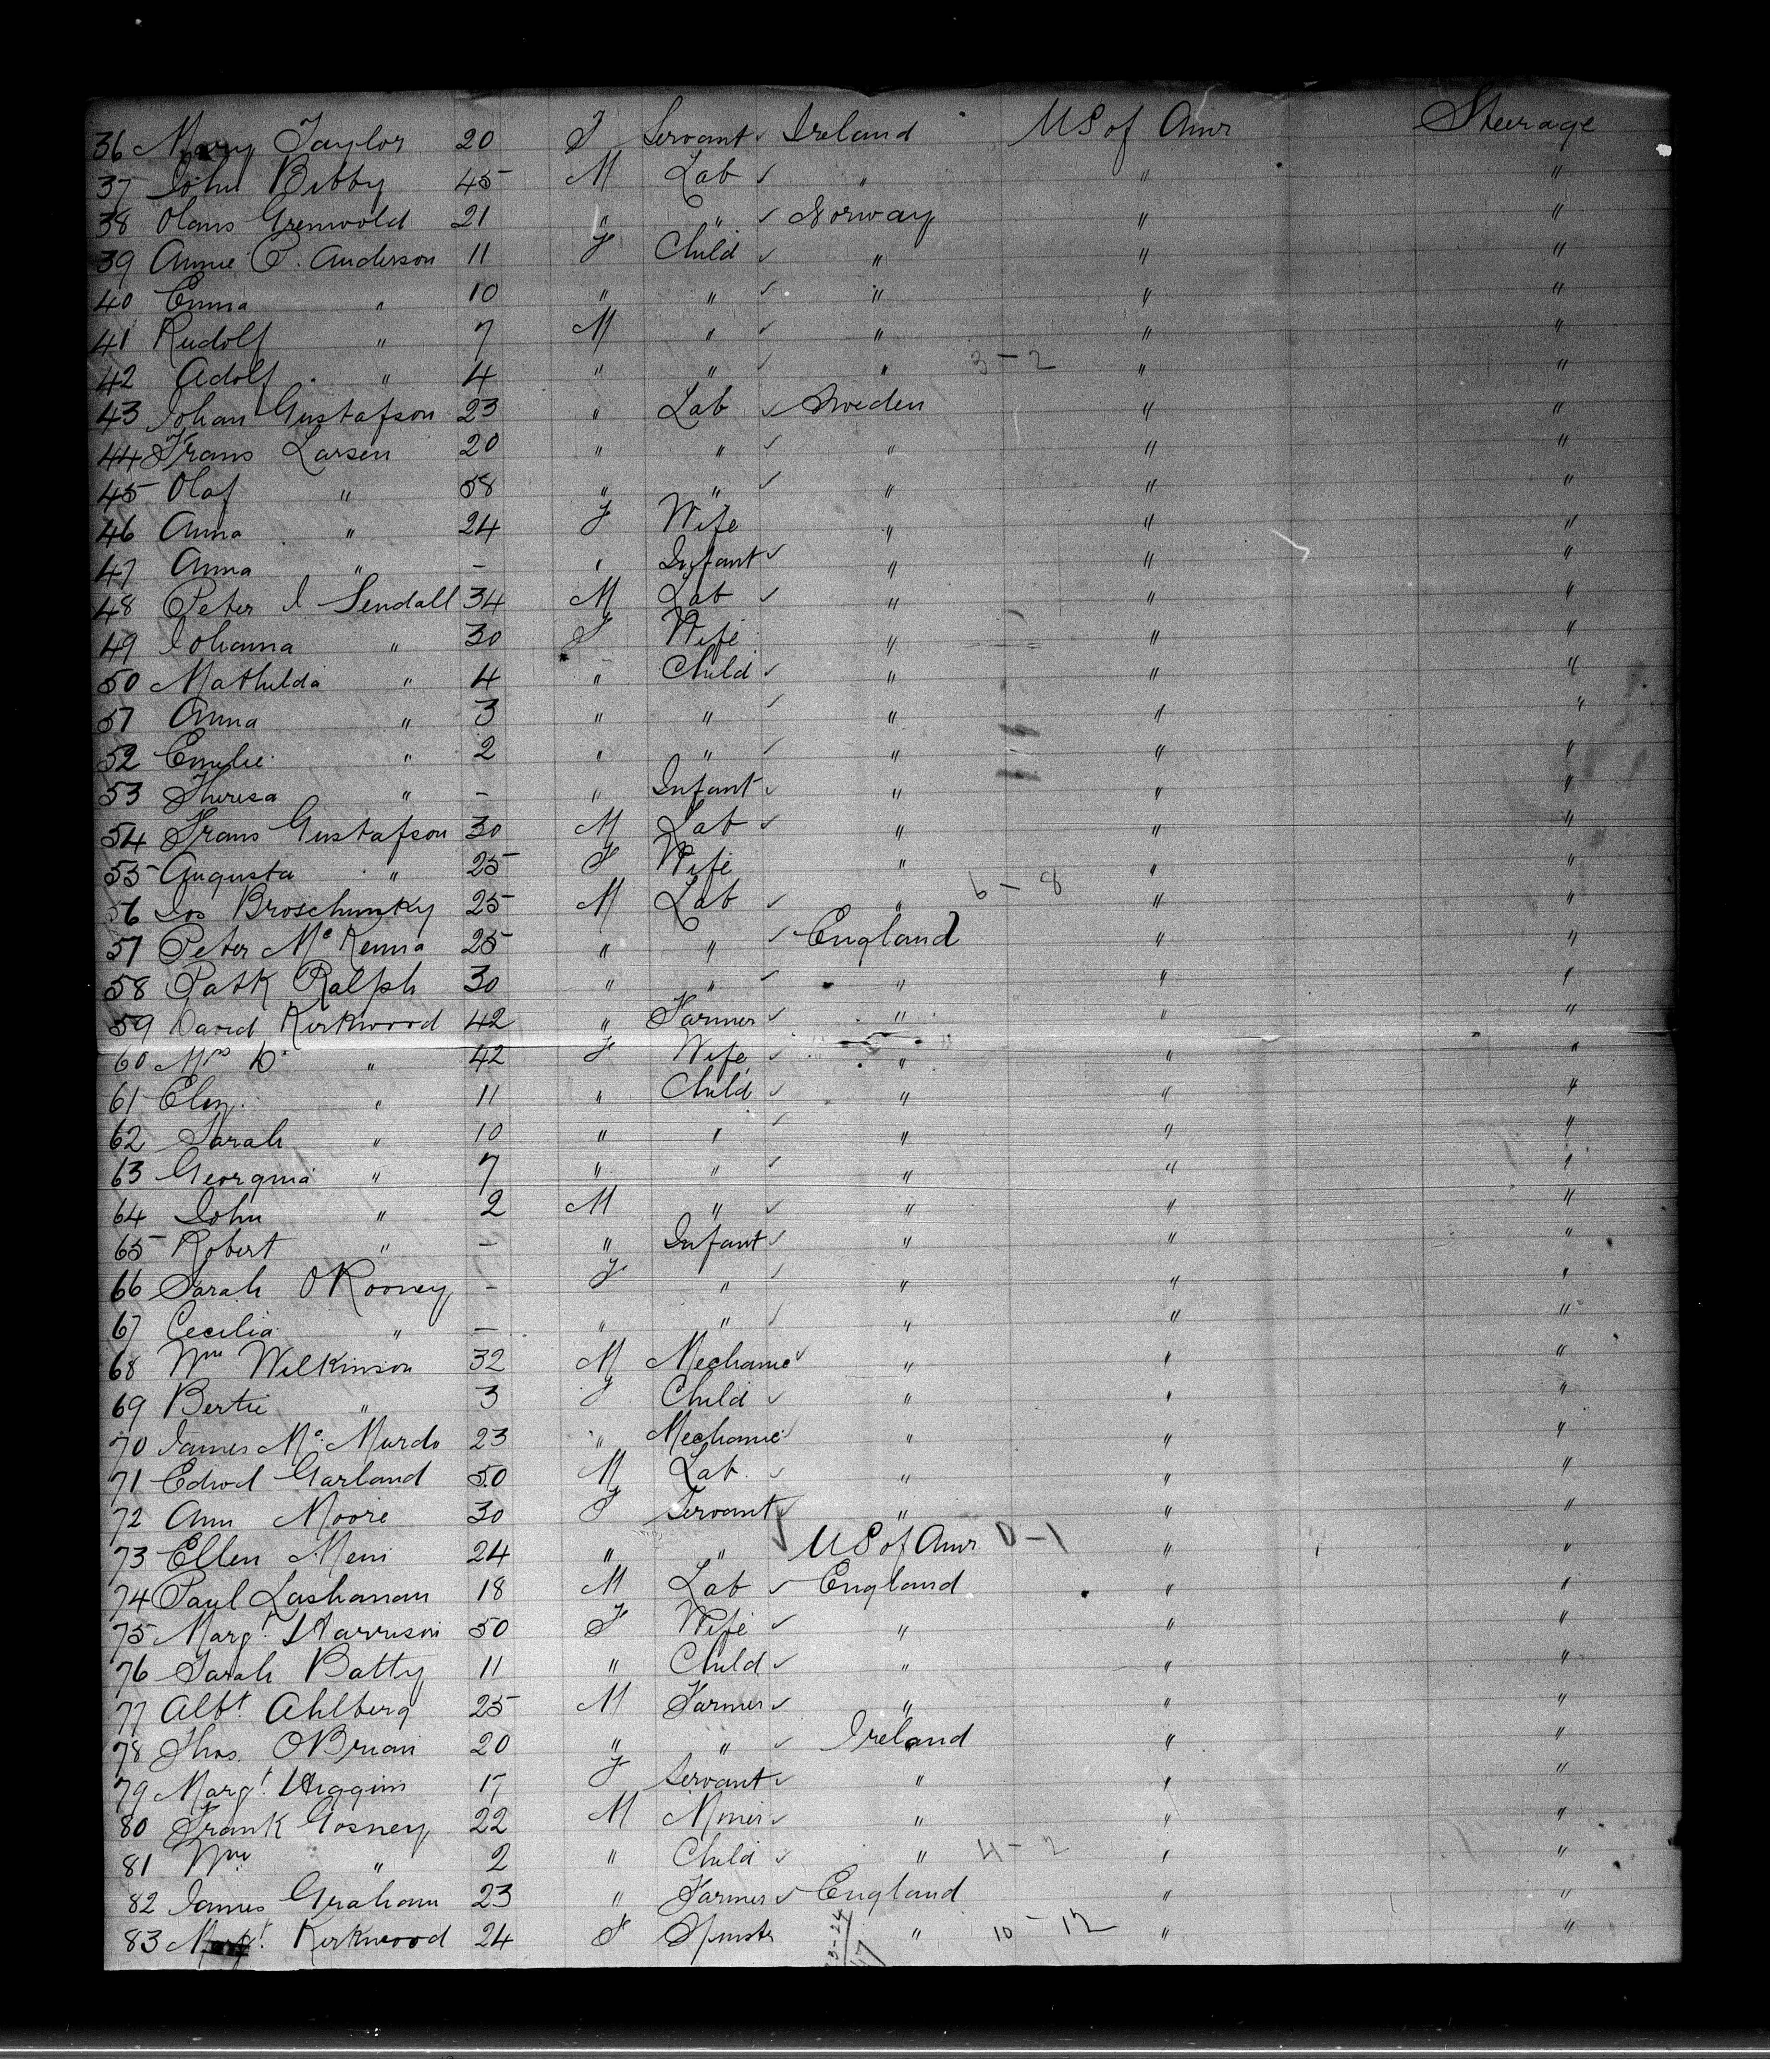 36 Mary Taylor 20 F Servant ✓ Ireland US of Amr Steerage
37 John Bibby 45 M Lab ✓ " " "
38 Olans Grenwold 21 " " ✓ Norway " "
39 Annie C. Anderson 11 F Child ✓ " " "
40 Emma " 10 " " ✓ " " "
41 Rudolf " 7 M " ✓ " " "
42 Adolf " 4 " " ✓ " 3-2 " "
43 Johan Gustafson 23 " Lab ✓ Sweden " "
44 Frans Larsen 20 " " ✓ " " "
45 Olaf " 58 " " ✓ " " "
46 Anna " 24 F Wife " " "
47 Anna " - " Infant ✓ " " "
48 Peter J Sendall 34 M Lab ✓ " " "
49 Johanna " 30 F Wife " " "
50 Mathilda " 4 " Child ✓ " " "
51 Anna " 3 " " ✓ " " "
52 Emelie " 2 " " ✓ " " "
53 Theresa " - " Infant ✓ " " "
54 Frans Gustafson 30 M Lab ✓ " " "
55 Augusta " 25 F Wife " " "
56 Jos 25 M Lab ✓ " 6-8 " "
57 Peter McKenna 25 " " ✓ England " "
58 Patk Ralph 30 " " ✓ " " "
59 David Kirkwood 42 " Farmer ✓ " " "
60 Mrs D. " 42 F Wife ✓ " " "
61 " 11 " Child ✓ " " "
62 Sarah " 10 " " ✓ " " "
63 Georgina " 7 " " ✓ " " "
64 John " 2 M " ✓ " " "
65 Robert " - " Infant ✓ " " "
66 Sarah O Rooney - F " ✓ " " "
67 Cecilia " - " " ✓ " " "
68 Wm Wilkinson 32 M Mechanic ✓ " " "
69 Bertie " 3 F Child ✓ " " "
70 James Mc Murdo 23 " Mechanic ✓ " " "
71 Edwd Garland 50 M Lab. ✓ " " "
72 Ann Moore 30 F Servant ✓ " " "
73 Ellen 24 " " ✓ US of Amr 0-1 " "
74 Paul Lashanan 18 M Lab ✓ England " "
75 Margt. Harrison 50 F Wife ✓ " " "
76 Sarah Batty 11 " Child ✓ " " "
77 Albt. Ahlberg 25 M Farmer ✓ " " "
78 Thos. OBrian 20 " " ✓ Ireland " "
79 Margt. Higgins 17 F Servant ✓ " " "
80 Frank Gosney 22 M Miner ✓ " " "
81 Wm " 2 " Child ✓ " 4-2 " "
82 James Graham 23 " Farmer ✓ England " "
83 Kirkwood 24 F Spinstr " 10-12 " "